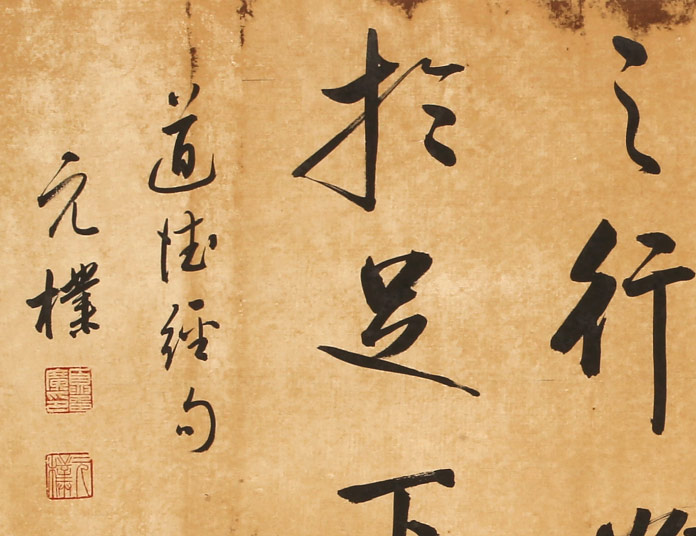 之行
於足下
道德經句
元樸
元樸